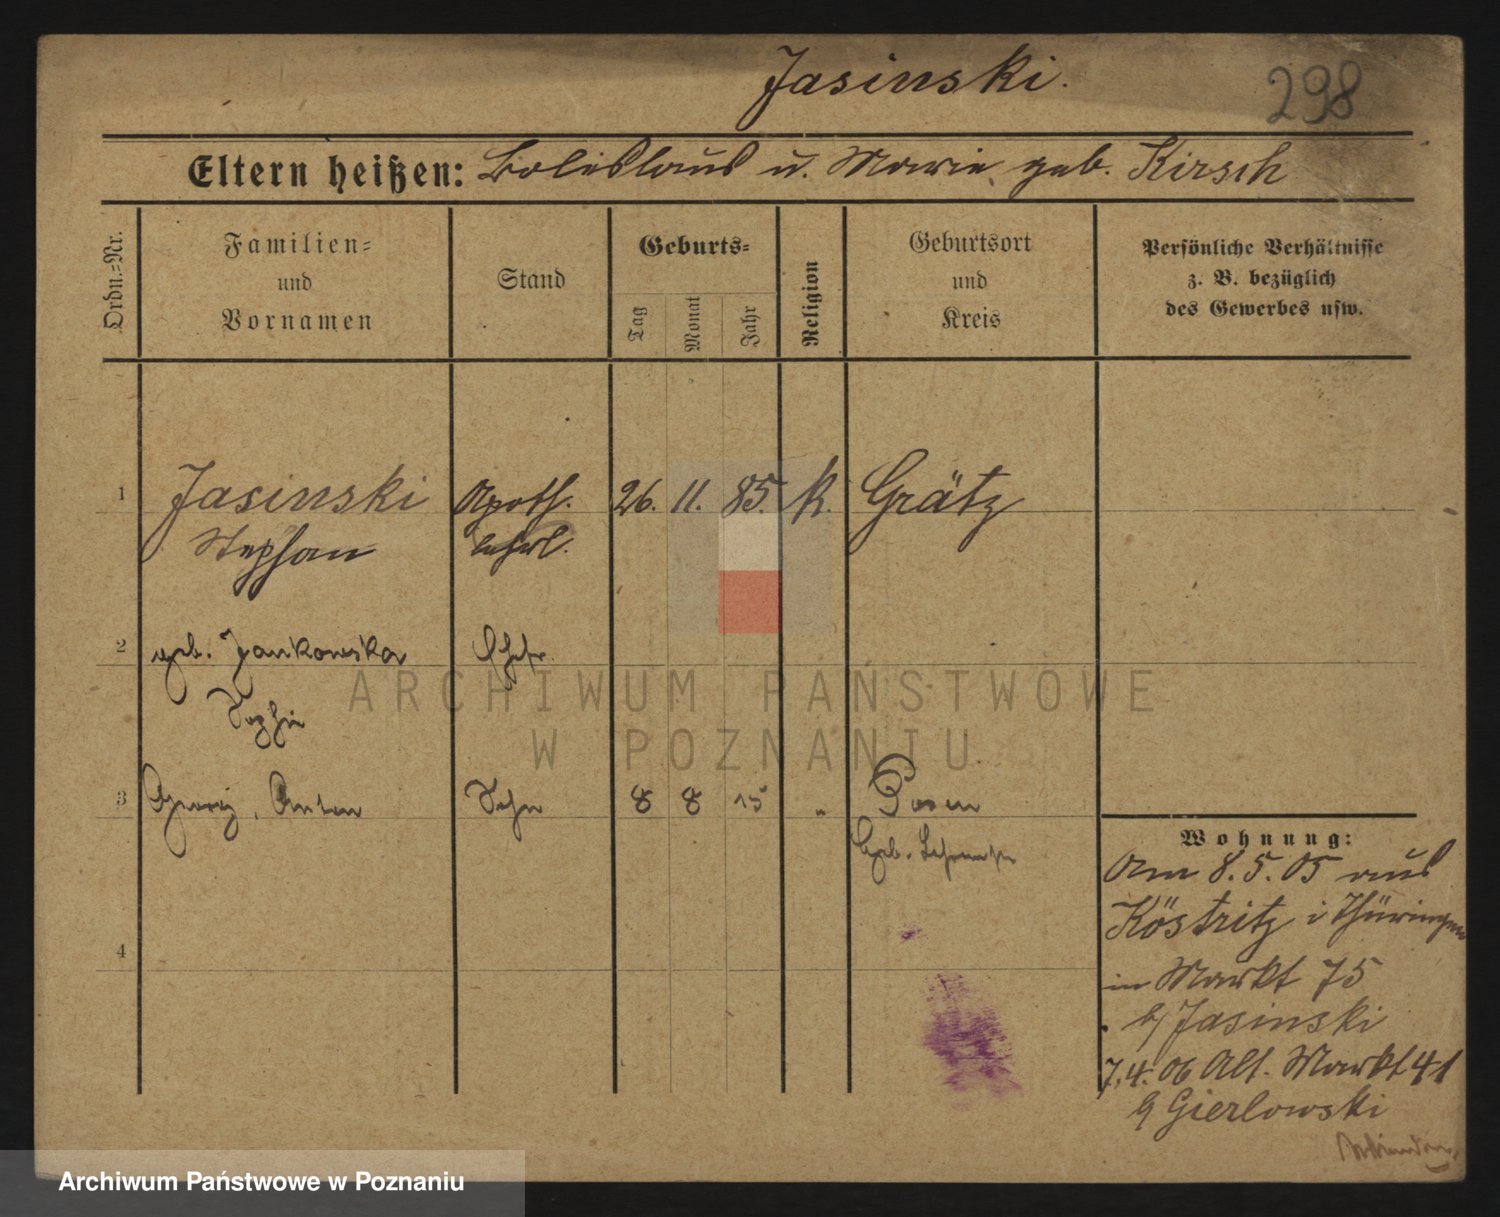 Jasinski.
298
Eltern heißen: Boleslaus u. Marie geb. Kirsch
Ordn.=Nr.
Familien=
und
Vornamen
Stand
Geburts=
Tag
Monat
Jahr
Religion
Geburtsort
und
Kreis
Persönliche Verhältnisse
z. B. bezüglich
des Gewerbes usw.
1 Jasinski Apoth. 26. 11. 85. k. Grätz
Stephan lehrl.
2 geb. Jankowska Ehefr.
Sophie
3 Georg, Anton Sohn 8 8 15 " Posen
Geb.
4
Wohnung:
Am 8.5.05 aus
Köstritz i Thüringen
in Markt 75
b/ Jasinski
7.4.06 Alt. Markt 41
b/ Gierlowski
ARCHIWUM PAŃSTWOWE
W POZNANIU
Archiwum Państwowe w Poznaniu